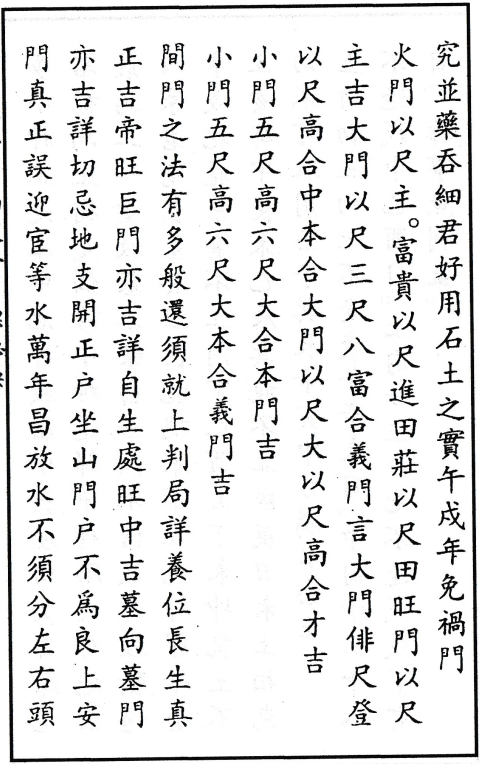 究並藥吞細君好用石土之實午戍年免禍門
火門以尺主。富貴以尺進田莊以尺田旺門以尺
主吉大門以尺三尺八富合義門言大門俳尺登
以尺高合中本合大門以尺大以尺高合才吉
小門五尺高六尺大合本門吉
小門五尺高六尺大本合義門吉
間門之法有多般還須就上判局詳養位長生真
正吉帝旺巨門亦吉詳自生處旺中吉墓向墓門
亦吉詳切忌地支開正户坐山門户不爲良上安
門真正誤迎宦等水萬年昌放水不須分左右頭